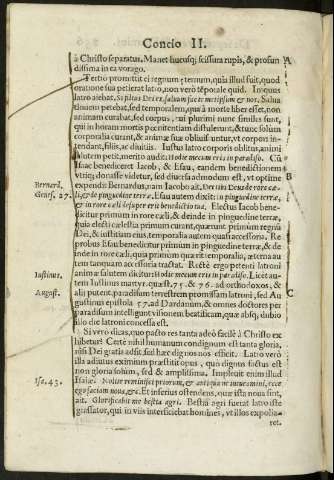 Concio II.
à Christo separatus. Manet hucusq; scissura rupis, & profun
dissima in ea vorago.
A
Tertiò promittit ei regnum æternum, quia illud fuit, quod
oratione sua petierat latro, non verò temporale quid. Impius
latro aiebat, Si filius Dei es, saluum fac te metipsum & nos. Salua
tionem petebat temporalem, qua à morte liber esset, non
animam curabat, sed corpus, cui plurimi nunc similes sunt,
qui in horam mortis pœnitentiam distulerunt, & tunc solùm
corporalia curant, & animæ suæ obliuiscuntur, vt corpori in-
tendant, filiis, ac diuitiis. Iustus latro corporis oblitus, animi
salutem petit, meritò audit: Hodie mecum eris in paradiso. Cùm
Isaac benediceret Iacob, & Esau, eandem benedictionem
utiq; donasse videtur, sed diuersa admodum est, vt optimè
Bernard.
expendit Bernardus, nam Iacob ait, Det tibi Deus de rore cæ-
Genes. 27.
li, & de pinguedine terræ. Esau autem dixit: in pinguedine terræ,
& in rore cæli desuper erit benedictio tua. Electus Iacob bene-
dicitur primum in rore cæli, & deinde in pinguedine terræ,
quia electi cælestia primum curant, quærunt primum regnum
Dei, & iustitiam eius, temporalia autem quasi accessoria. Re
probus Esau benedicitur primum in pinguedine terræ, & de
inde in rore cæli, quia primùm quærit temporalia, æterna au
tem tanquam accessoria tractat. Rectè ergo petenti latroni
animæ salutem dicitur: Hodie mecum eris in paradiso. Licet au-
Iustinus.
tem Iustinus martyr. quæst. 75. & 76. ad orthodoxos, &
alij putent paradisum terrestrem promissam latroni, sed Au
C
August.
gustinus epistola 57. ad Dardanum, & omnes doctores per
paradisum intelligunt visionem beatificam, quæ absq; dubio
illo die latroni concessa est.
Si verò dicas, quo pacto res tanta adeò facilè à Christo ex
hibetur? Certè nihil humanum condignum est tanta gloria,
nisi Dei gratia adsit, sed hæc dignos nos efficit. Latro verò
illa adiutus eximium præstitit opus, quo dignus factus est
non gloria solùm, sed & amplissima. Impleuit enim illud
Isa. 43.
Isaiæ: Nolite reminisci priorum, & antiqua ne intueamini, ecce
ego faciam noua, &c. Et inferius ostendens, quæ ista noua sint,
ait. Glorificabit me bestia agri. Bestia agri fuerat latro iste
grassator, qui in viis interficiebat homines, vt illos expolia-
ret.